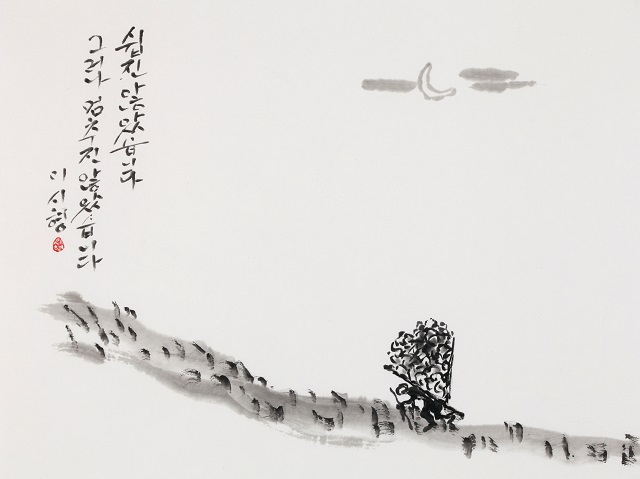 쉽진 않았습니다
그러나 멈추진 않았습니다
이시형